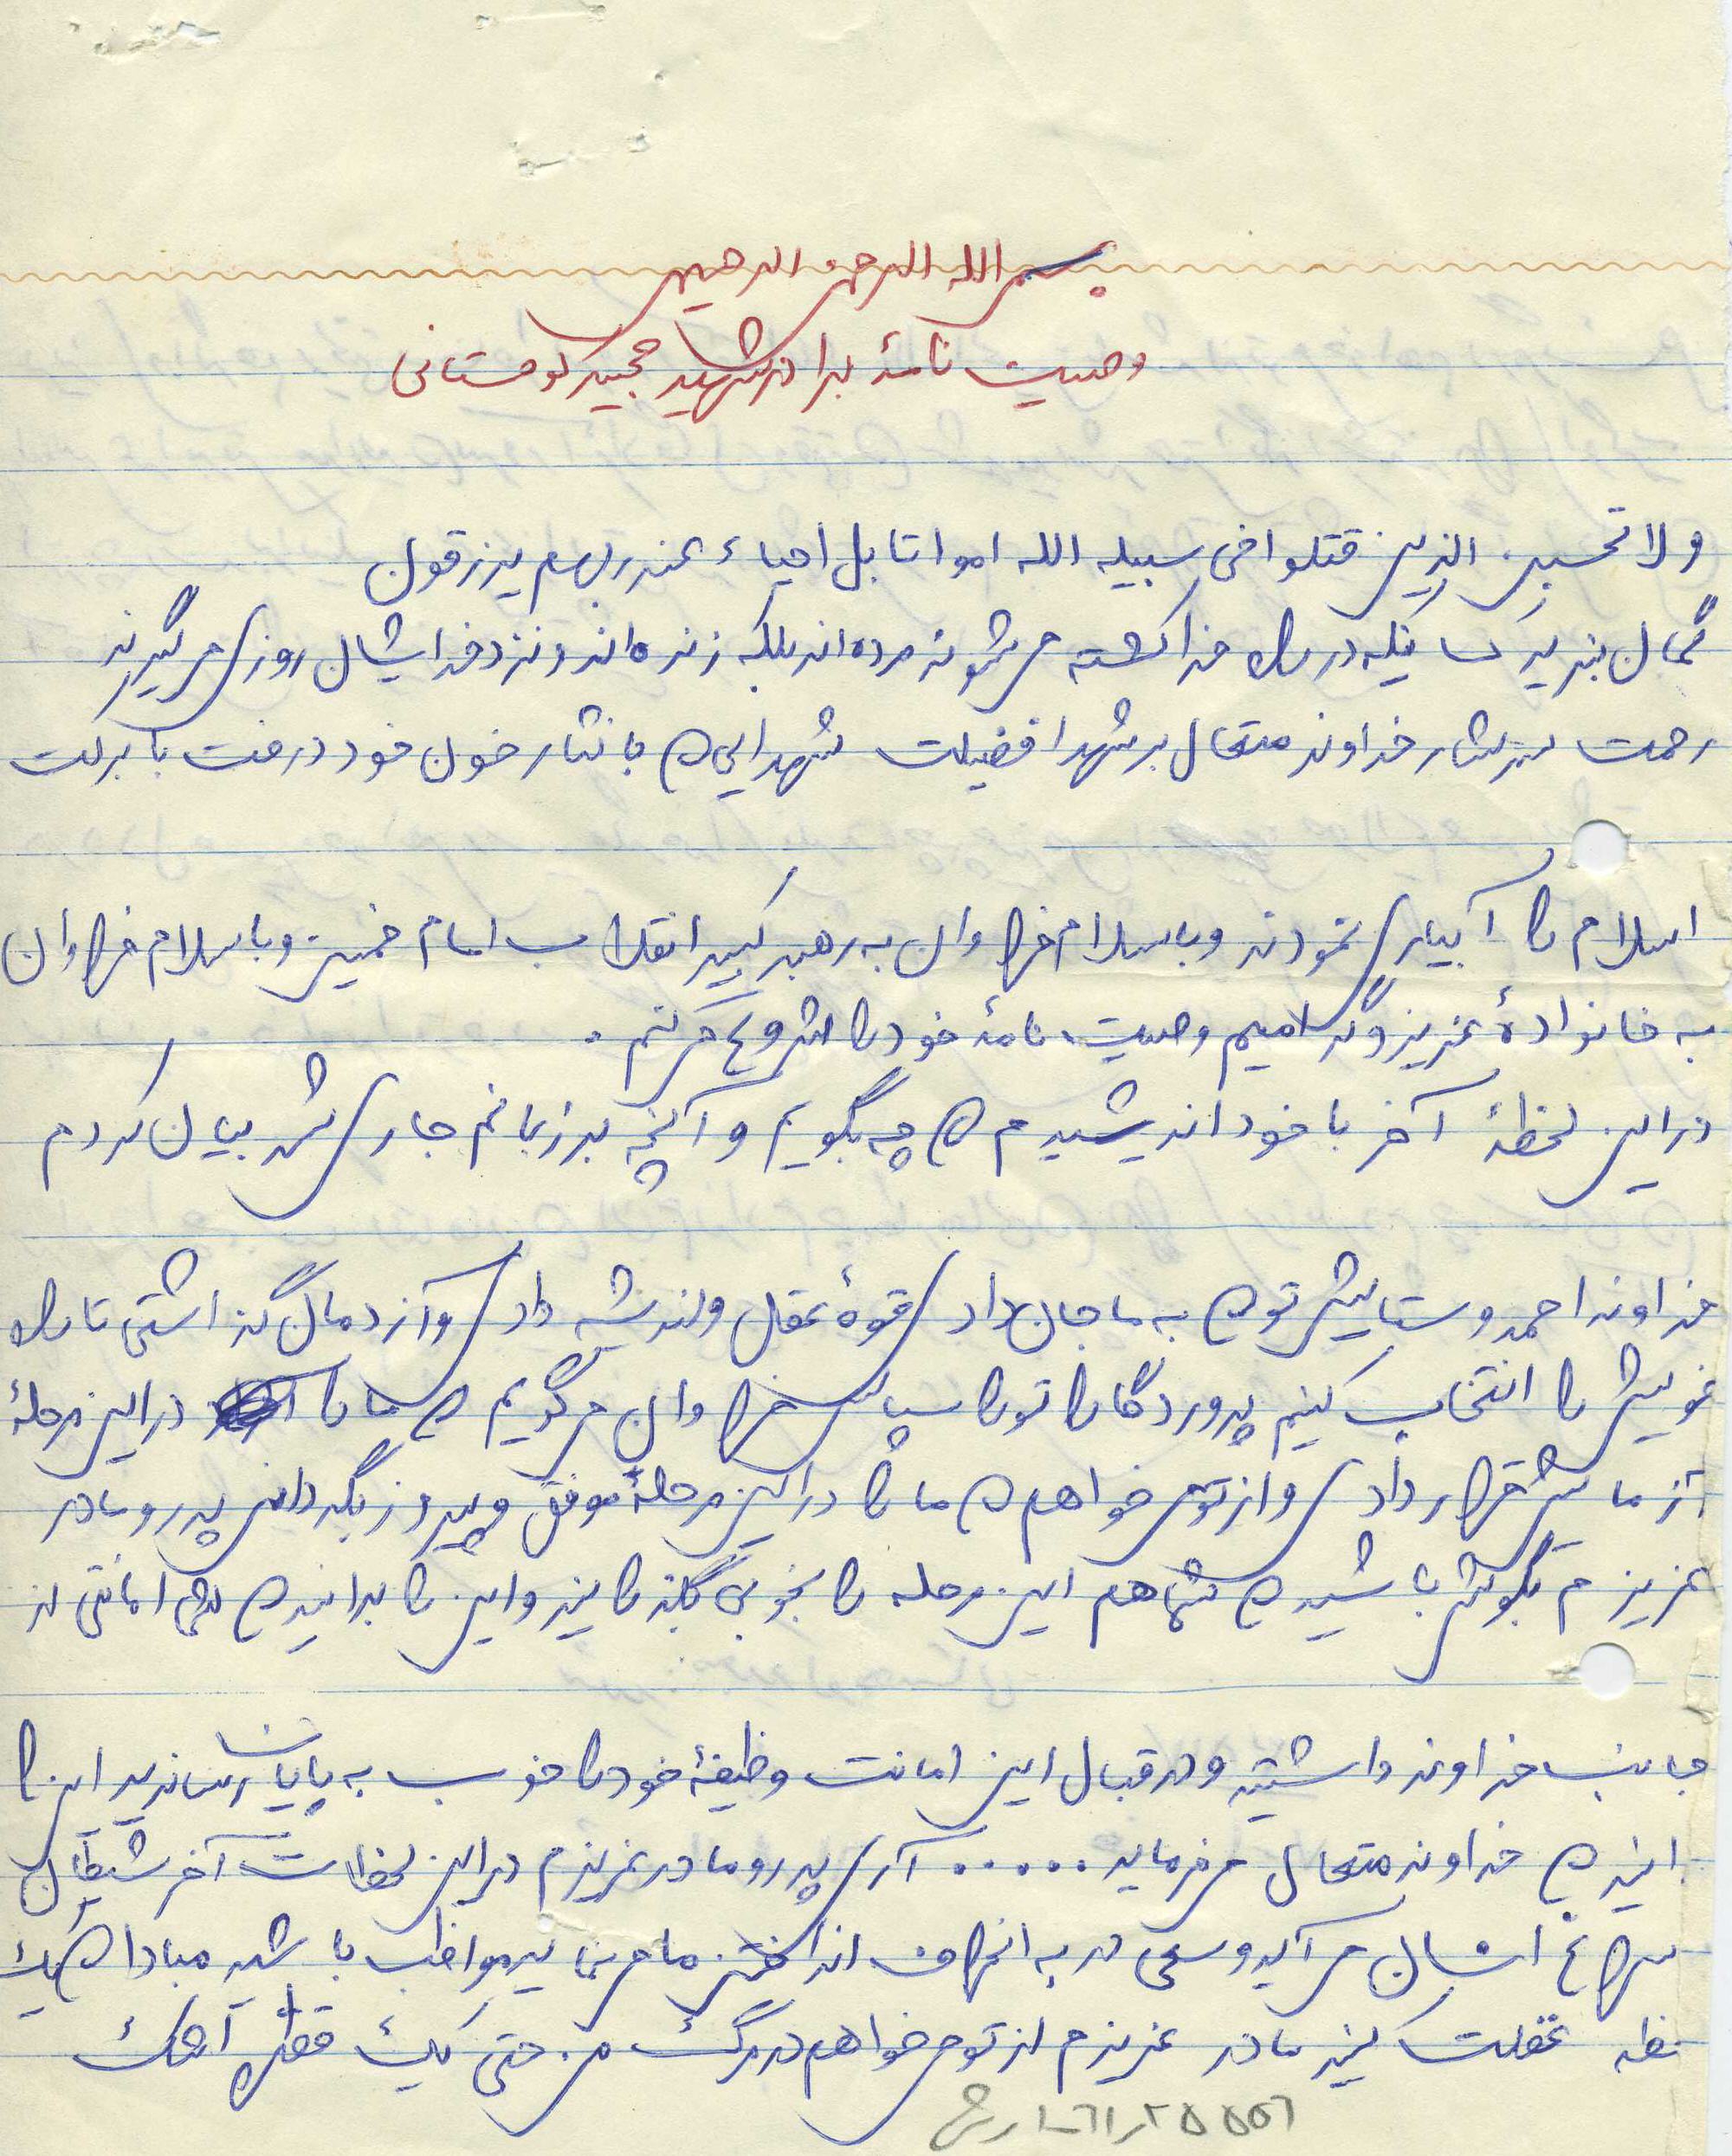 بسم الله الرحمن الرحیم
وصیت نامهٔ برادر شهید مجید کوهستانی
ولا تحسبن الذین قتلوا فی سبیله الله امواتا بل احیاء عند ربهم یرزقون
گمان نبرید کسانیکه در راه خدا کشته می‌شوند مرده‌اند بلکه زنده‌اند و نزد خدایشان روزی می‌گیرند
رحمت بی‌شمار خداوند متعال بر شهدا فضیلت شهدایی که با نثار خون خود درخت با برکت
اسلام را آبیاری نمودند و با سلام فراوان به رهبر کبیر انقلاب امام خمینی و با سلام فراوان
به خانوادهٔ عزیز و گرامیم وصیت نامهٔ خود را شروع می‌کنم .
در این لحظهٔ آخر با خود اندیشیدم که چه بگویم و آنچه بر زبانم جاری شد بیان کردم
خداوندا حمد و ستایش تو که به ما جان دادی قوهٔ عقل و اندیشه دادی و آزادمان گذاشتی تا راه
خویش را انتخاب کنیم پروردگارا تو را سپاس فراوان می‌گویم که ما را در این مرحلهٔ
آزمایش قرار دادی و از تو می‌خواهم که ما را در این مرحلهٔ موفق و پیروز بگردانی پدر و مادر
عزیزم بکوش باشید که شما هم این مرحله را بخوبی بگذرانید و این را بدانید که امانتی از
جانب خداوند داشتید و در قبال این امانت وظیفهٔ خود را خوب به پایان رساندید این را
خداوند متعال می‌فرماید ..... آری پدر و مادر عزیزم در این لحظات آخر شیطان
سراغ انسان می‌آید و سعی در به انحراف انداختن ما می‌نماید مواظب باشید مبادا که یک
غفلت کنید مادر عزیزم از تو می‌خواهم در مرگ من حتی یک قطره اشک